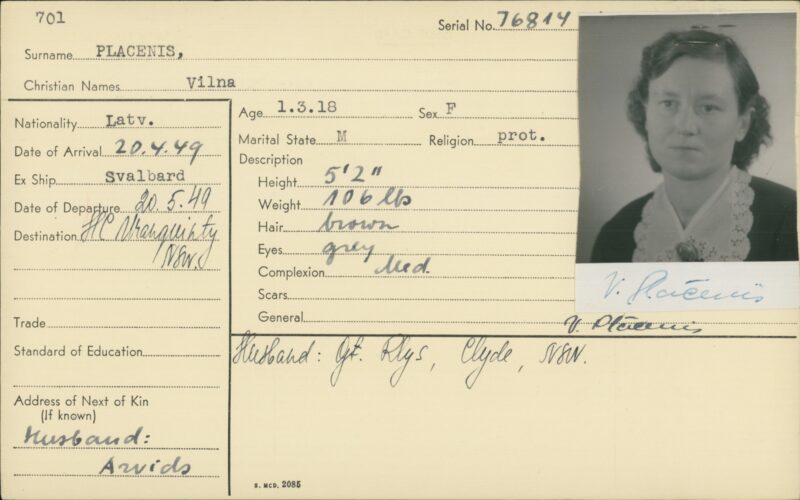 701
Serial No. 76814
Surname PLACENIS,
Christian Names Vilna
Nationality Latv.
Date of Arrival 20.4.49
Ex Ship Svalbard
Date of Departure 20.5.49
Destination HC Uranquinty
NSW.
Trade
Standard of Education
Address of Next of Kin
(If known)
Husband:
Arvids
Age 1.3.18 Sex F
Marital State M Religion prot.
Description
Height 5'2"
Weight 106 lbs
Hair brown
Eyes grey
Complexion Med.
Scars
General
V. Plācenis
V. Plācenis
Husband: Gt. Rlys, Clyde, NSW.
S. MCD. 2085